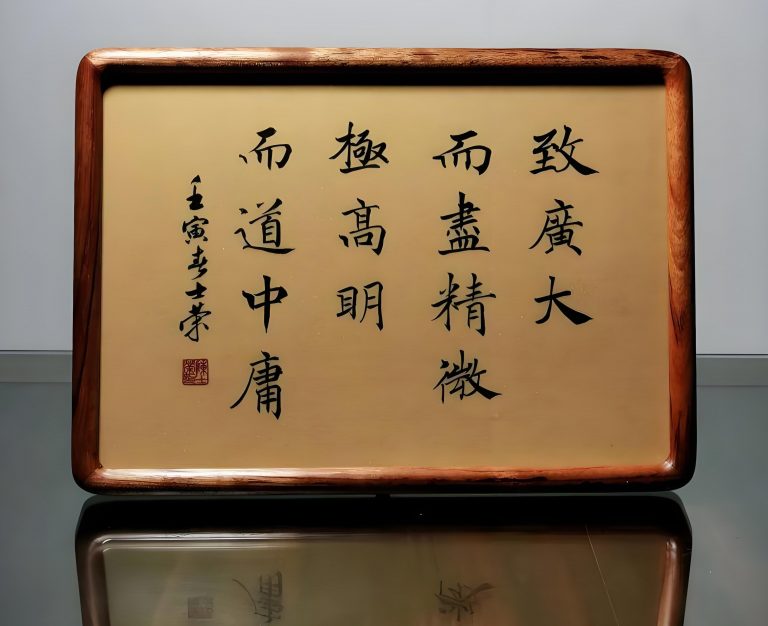 致廣大
而盡精微
極高明
而道中庸
壬寅春士榮